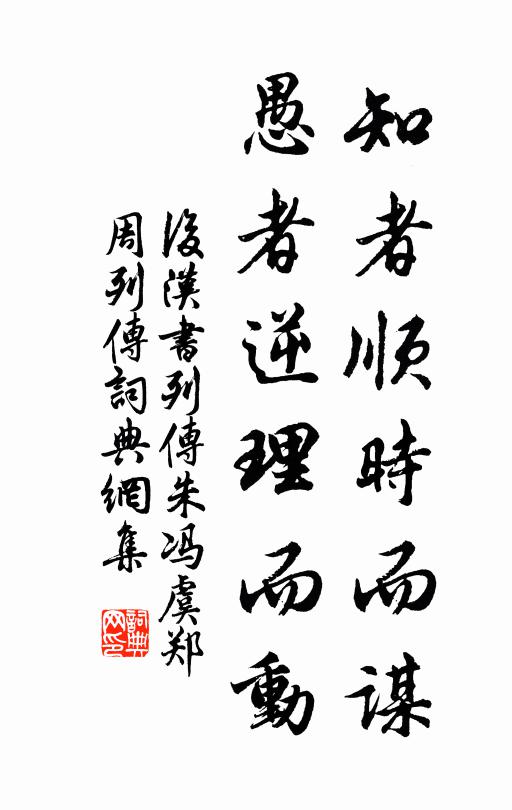 知者順時而謀
愚者逆理而動
後漢書列傳朱冯虞郑
周列傳詞典網集
詞典
网印